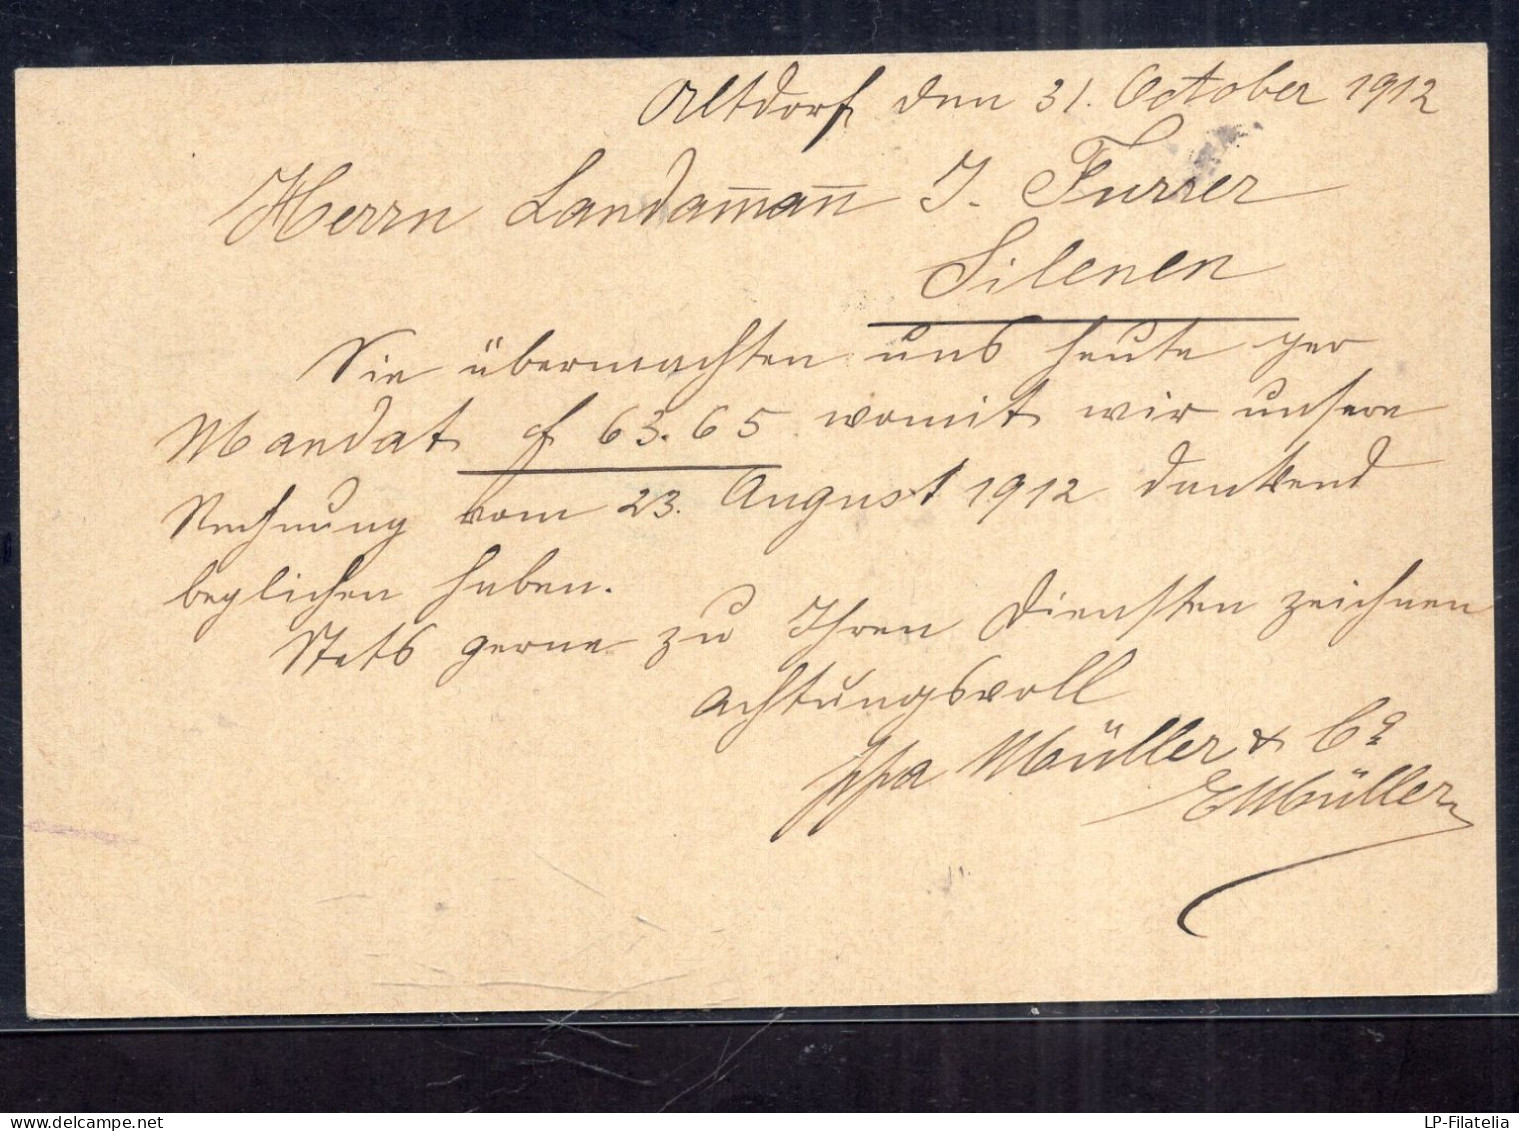 Altdorf den 31. October 1912
Herrn Landam̅an̅ J. Furrer
Silenen
Sie übermachten uns heute per
Mandat f 63.65 womit wir unsere
Rechnung vom 23. August 1912 dankend
beglichen haben.
Stets gerne zu Ihren Diensten zeichnen
achtungsvoll
ppa Müller & Co
E Müller
LP-Filatelia